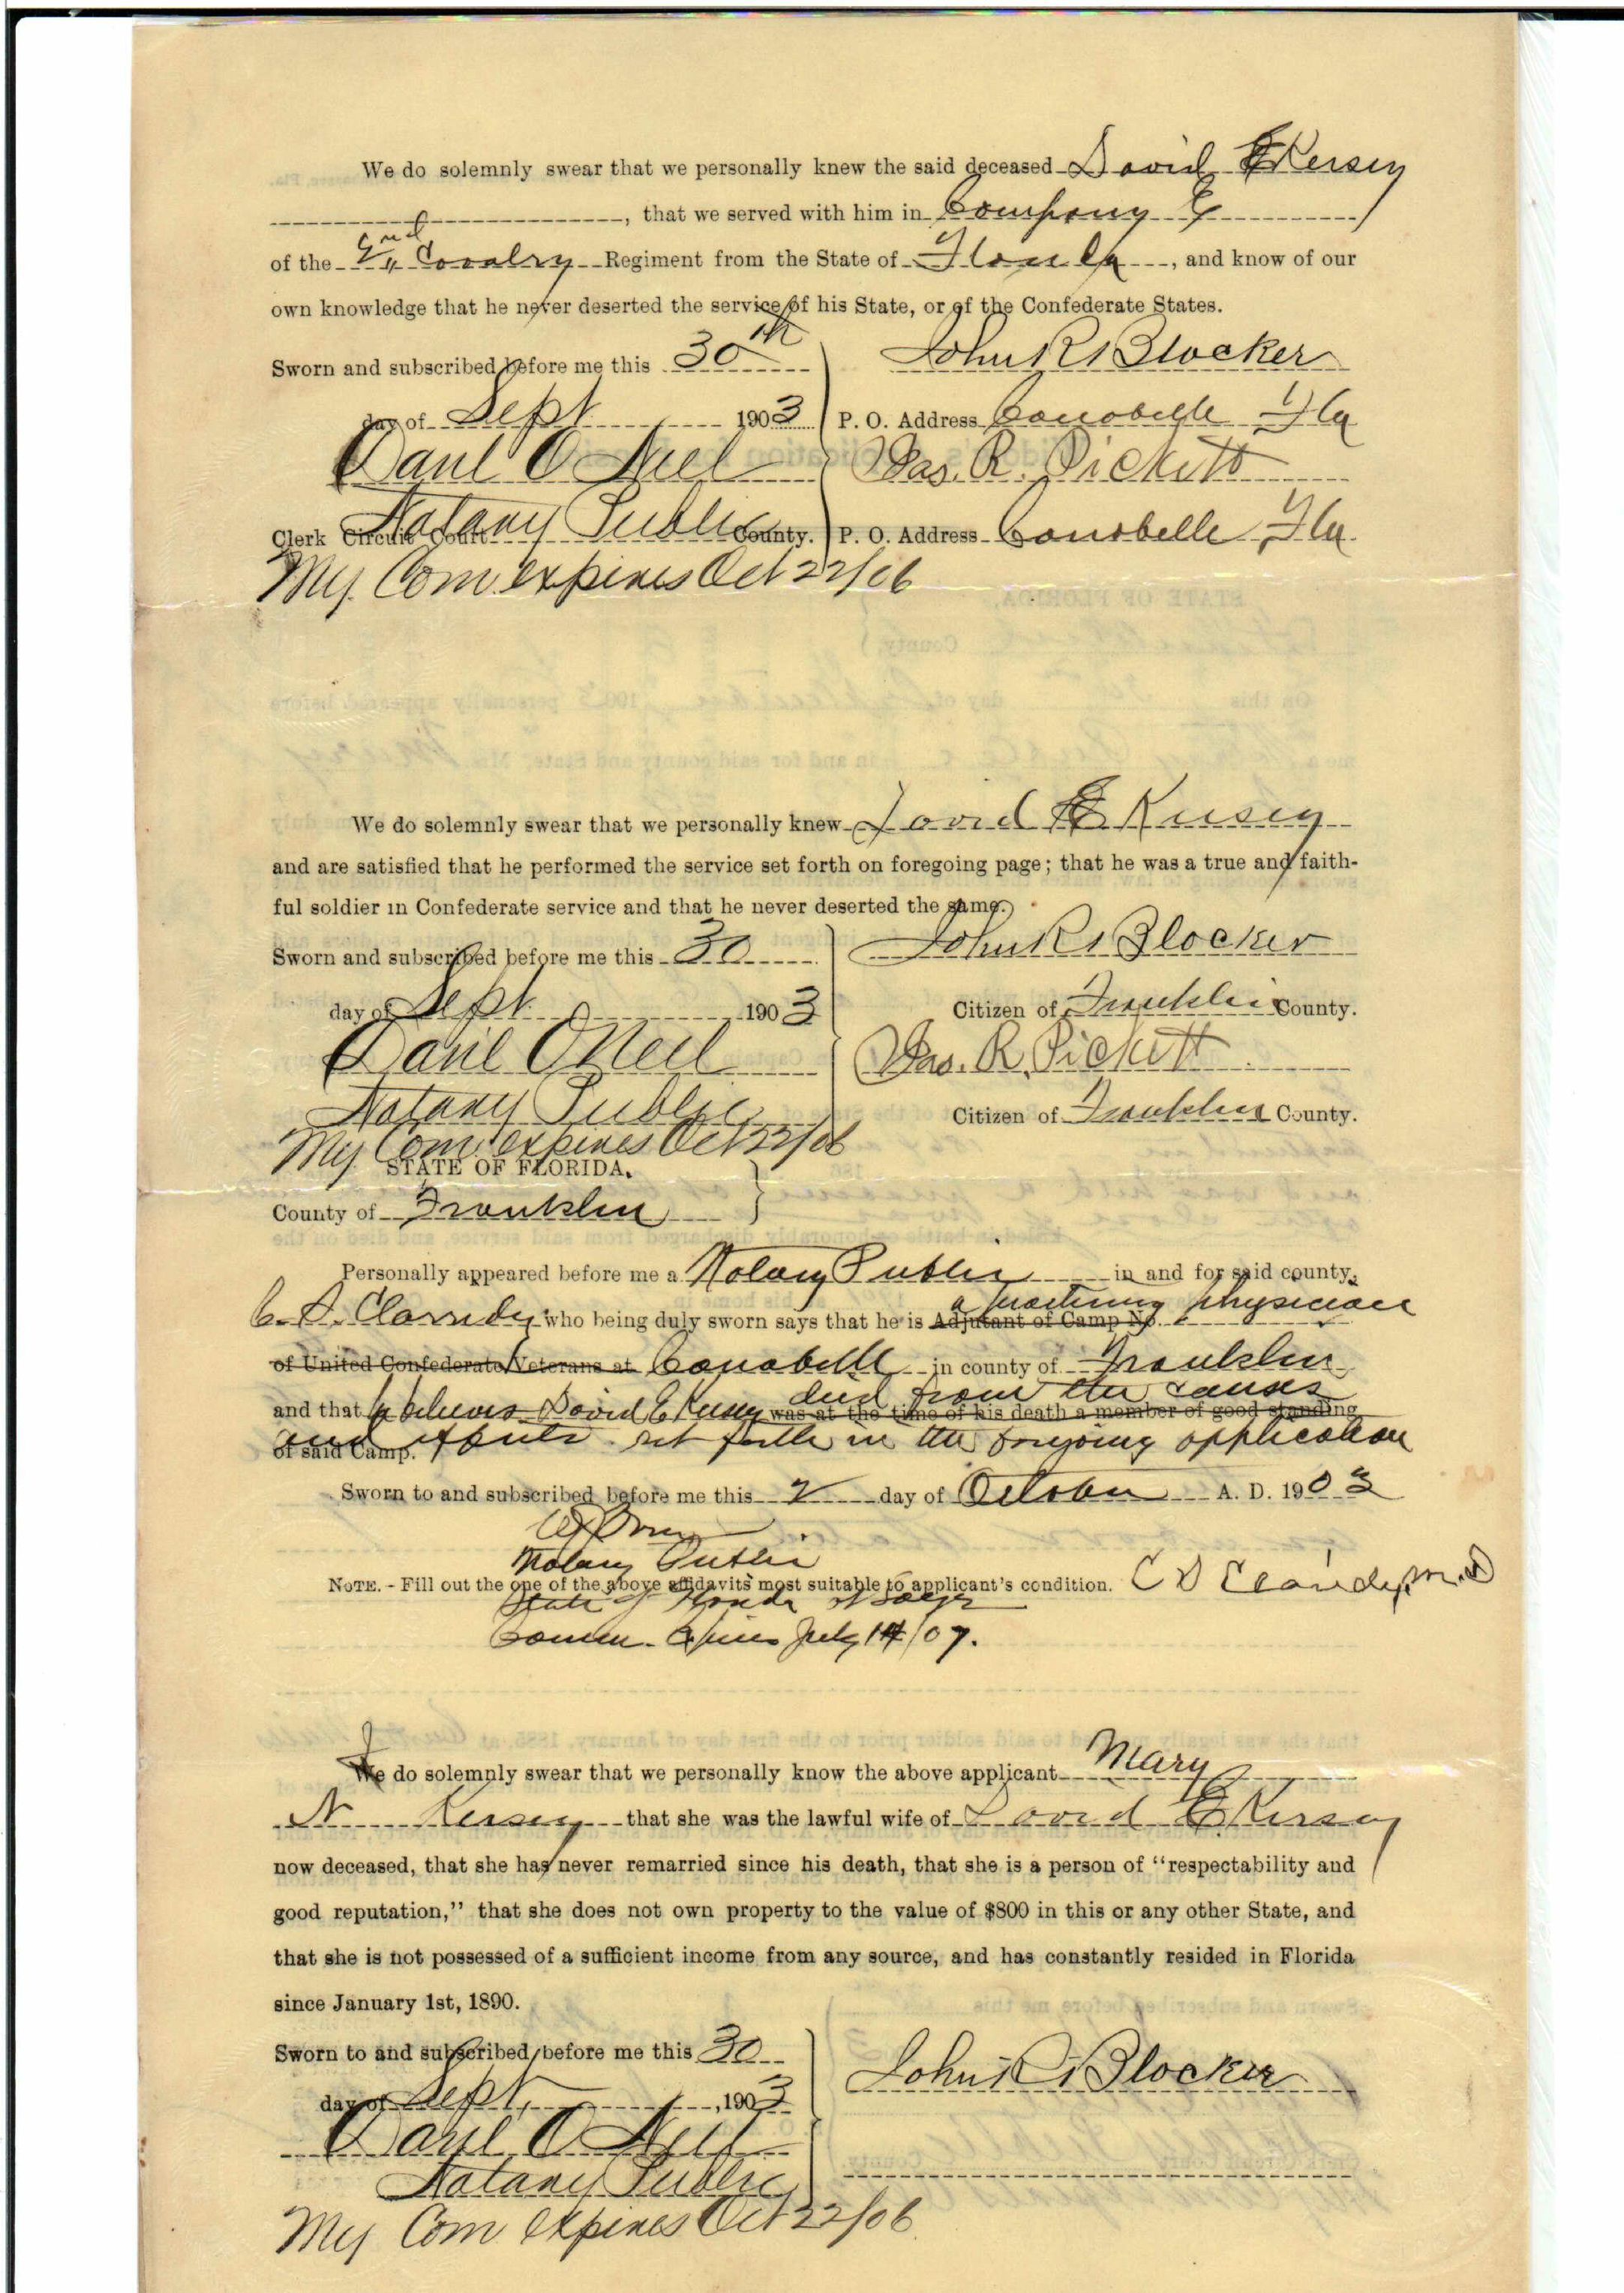 We do solemnly swear that we personally knew the said deceased David E Kersey
, that we served with him in Company E
of the 2nd Cavalry Regiment from the State of Florida, and know of our
own knowledge that he never deserted the service of his State, or of the Confederate States.
Sworn and subscribed before me this 30th
day of Sept 1903
Danl O Neil
Notary Public
Clerk Circuit Court County.
My Com expires Oct 22/06
John R Blocker
P. O. Address Carrabelle Fla
Jas. R. Pickett
P. O. Address Carrabelle Fla
We do solemnly swear that we personally knew David E Kersey
and are satisfied that he performed the service set forth on foregoing page; that he was a true and faith-
ful soldier in Confederate service and that he never deserted the same.
Sworn and subscribed before me this 30
day of Sept 1903
Danl O Neil
Notary Public
My Com expires Oct 22/06
John R Blocker
Citizen of Franklin County.
Jas. R. Pickett
Citizen of Franklin County.
STATE OF FLORIDA,
County of Franklin
Personally appeared before me a Notary Public in and for said county,
a practicing physician
who being duly sworn says that he is Adjutant of Camp No
of United Confederate Veterans at Carrabelle in county of Franklin
died from the causes
and that he believes David E Kersey was at the time of his death a member of good standing
of said Camp.
set forth in the foregoing application
Sworn to and subscribed before me this 2 day of October A. D. 1903
Notary Public
NOTE. - Fill out the one of the above affidavits most suitable to applicant's condition.
State of Florida at Large
Comm. Expires July 14/07.
We do solemnly swear that we personally know the above applicant Mary
N Kersey that she was the lawful wife of David E Kersey
now deceased, that she has never remarried since his death, that she is a person of "respectability and
good reputation," that she does not own property to the value of $800 in this or any other State, and
that she is not possessed of a sufficient income from any source, and has constantly resided in Florida
since January 1st, 1890.
Sworn to and subscribed before me this 30
day of Sept, 1903
Danl O Neil
Notary Public
My Com expires Oct 22/06
John R Blocker